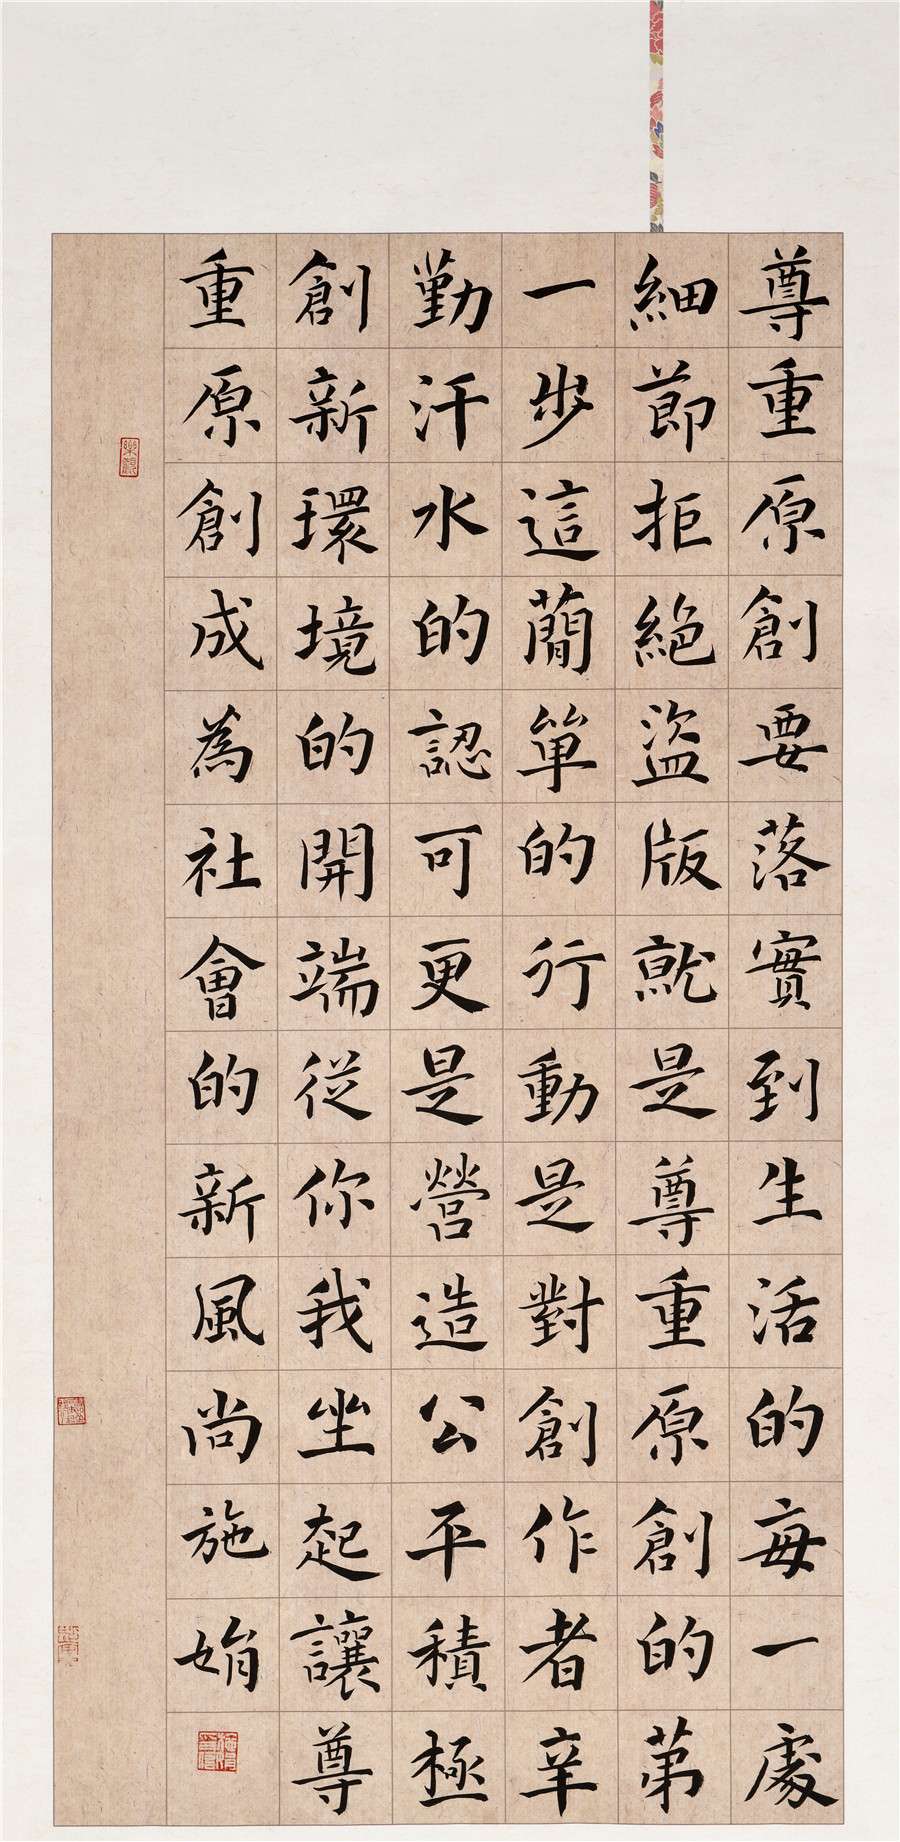 尊重原創要落實到生活的每一處
細節拒絕盜版就是尊重原創的第
一步這簡單的行動是對創作者辛
勤汗水的認可更是營造公平積極
創新環境的開端從你我坐起讓尊
重原創成為社會的新風尚施娟